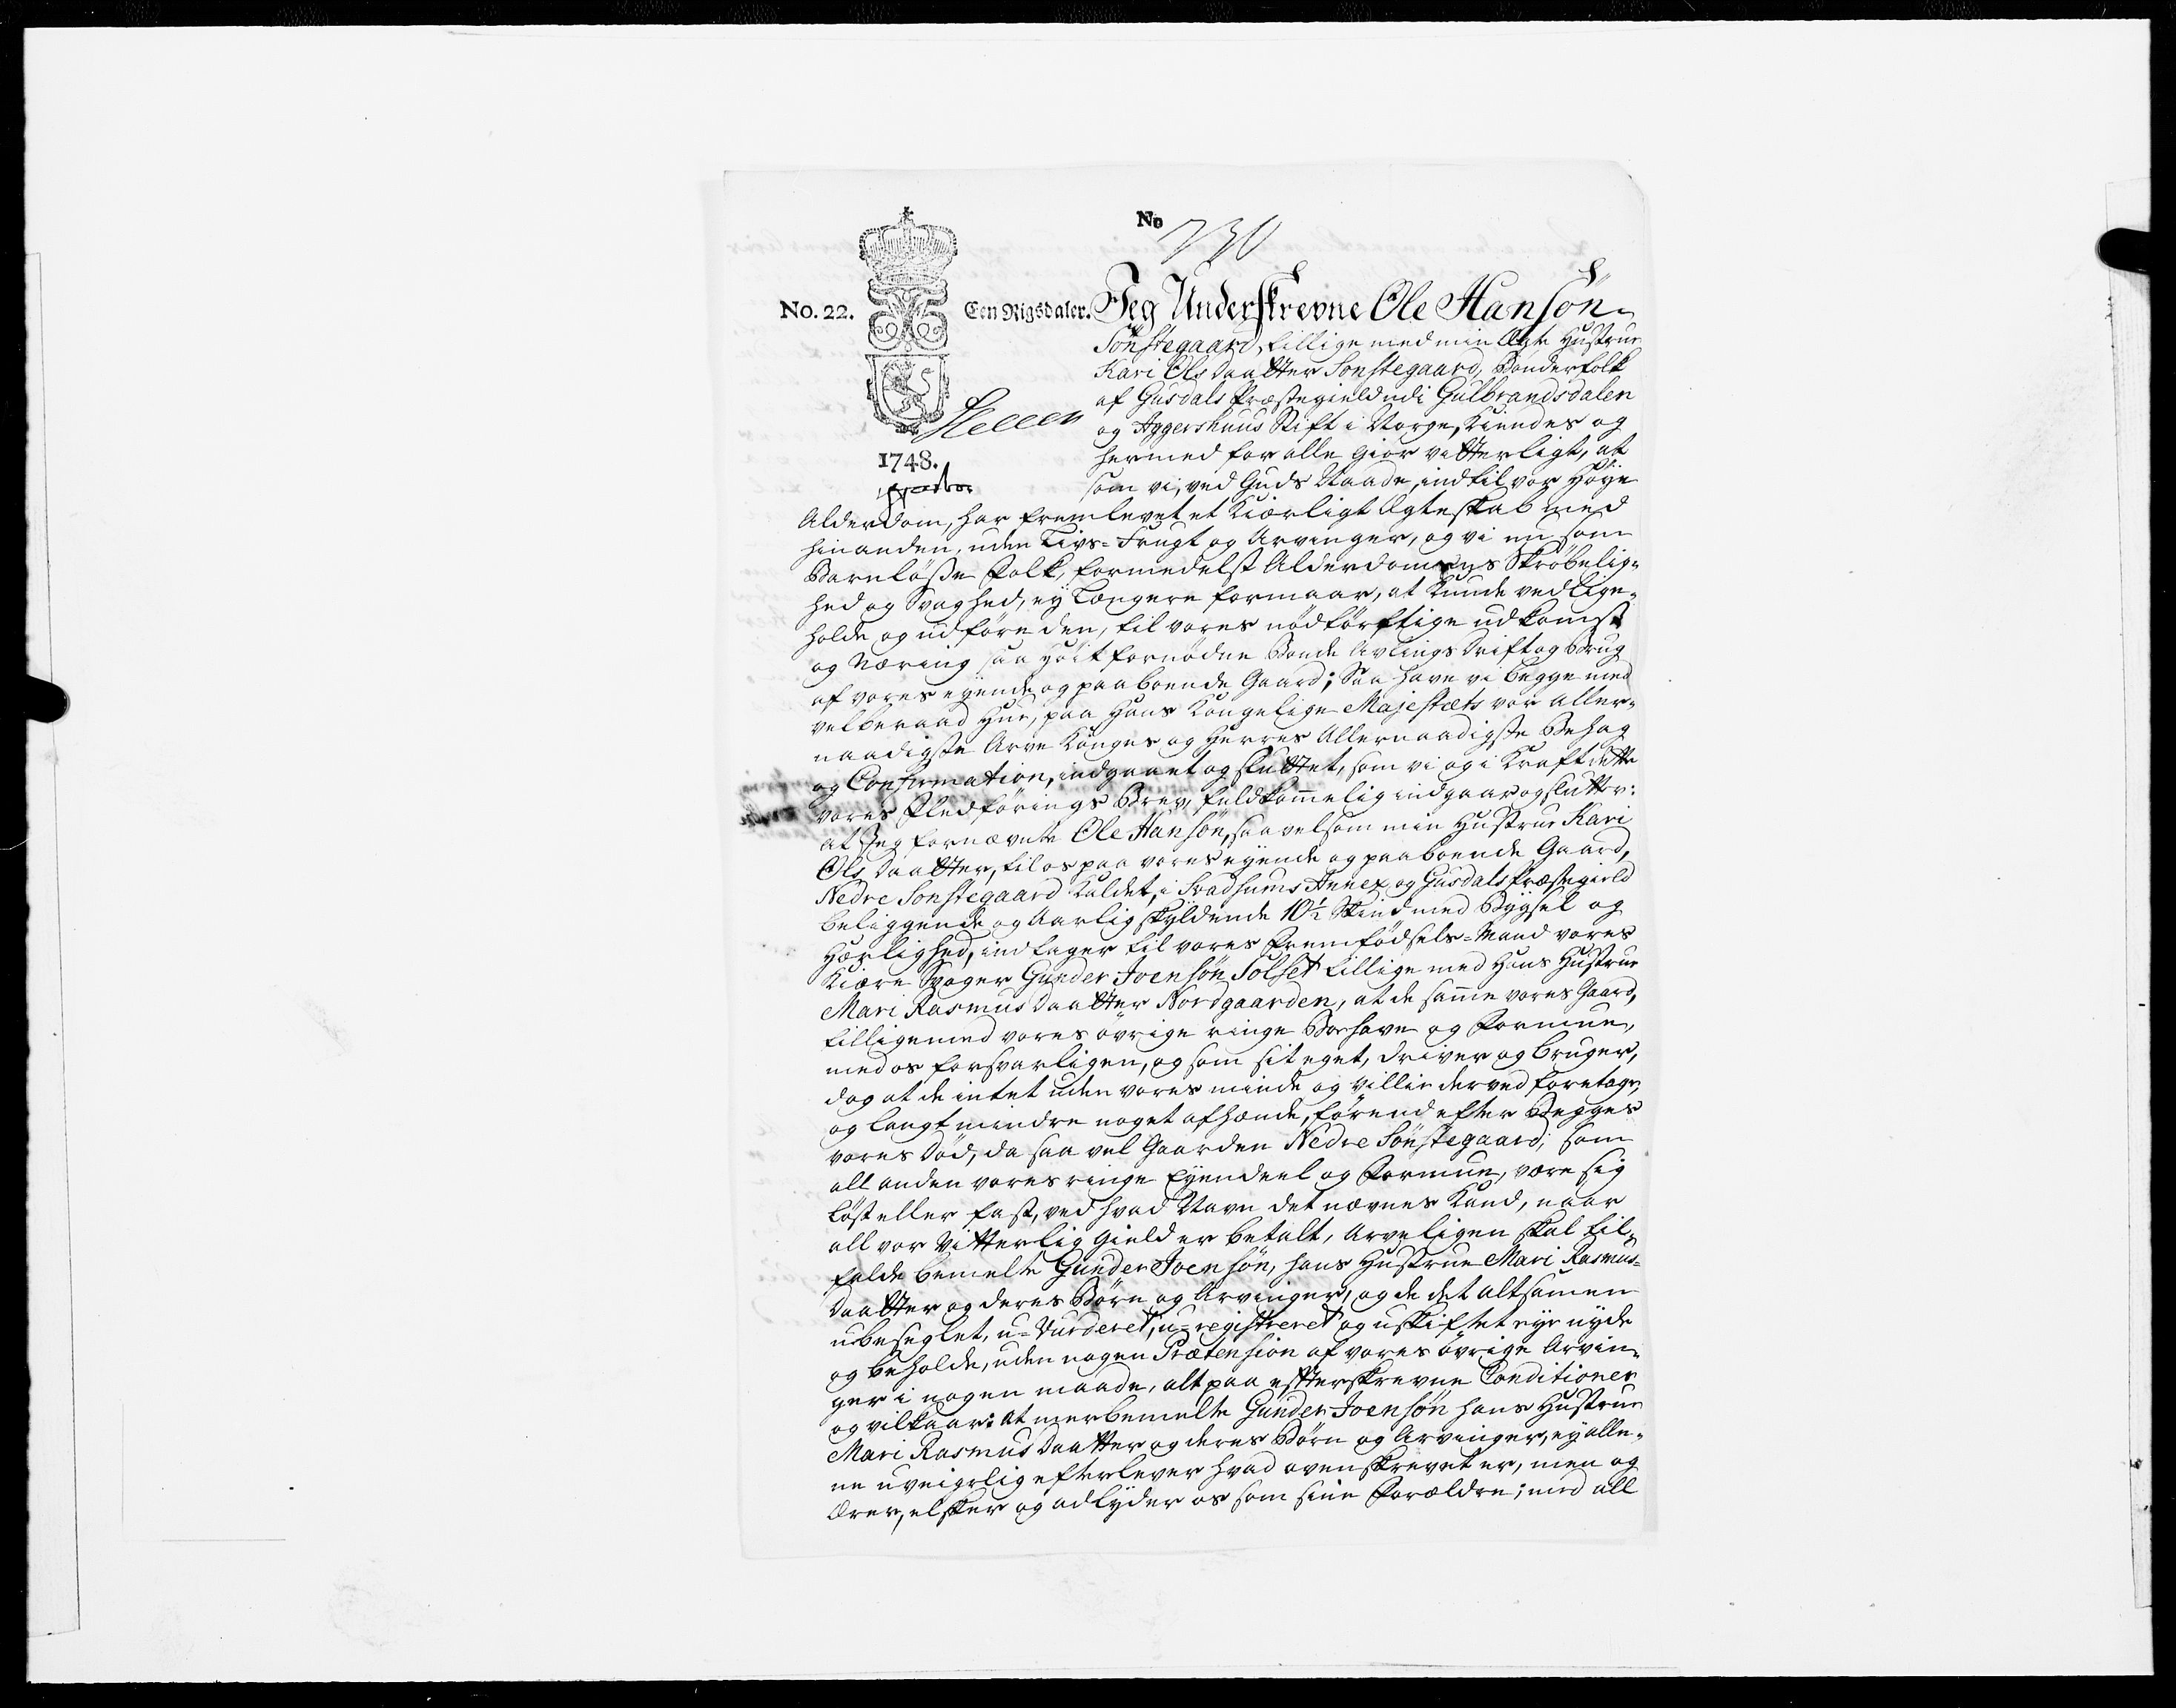 No 730
No. 22. Een Rigsdaler. Jeg Underskrevne Ole Hansøn
Sønstegaard, tillige med min Ægte Hustrue
Kari Olsdaatter Sønstegaard, Bønderfolk
af Gusdals Præstegield udi Gulbrandsdalen
og Aggershuus Stift i Norge, Kiendes og
1748.
hermed for alle giør vitterligt, at
som vi, ved Guds Naade, indtil vor høye
Alderdom, har fremlevet et Kiærligt Ægteskab med
hinanden, uden Livs-Frugt og Arvinger, og vi nu som
Barnløsse Folk, formedelst Alderdommens Skrøbelig-
hed og Svaghed, ey længere formaar, at kunde vedlige-
holde og udføre den, til vores nødtørftige udkomst
og Næring saa høit fornødne Bonde Avlings Drift og Brug
af vores eyende og paaboende Gaard; Saa have vi begge med
velberaad Hue, paa Hans Kongelige Majestæts vor aller-
naadigste Arve Konges og Herres Allernaadigste Behag
og Confirmation, indgaaet og sluttet, som vi og i Kraft dette
vores Fledførings Brev fuldkommelig indgaar og slutter:
at Jeg fornævnte Ole Hansøn, saavelsom min Hustrue Kari
Olsdaatter, til os paa vores eyende og paaboende Gaard,
Nedre Sønstegaard kaldet, i Svadsums Annex og Gusdals Præstegield
beliggende og Aarlig skyldende 10½ Skind med Bygsel og
Herlighed, indtager til vores Fremfødsels-Mand vores
kiære Svoger Gunder Joensøn Solset tillige med Hans Hustrue
Mari Rasmusdaatter Nordgaarden, at de samme vores Gaard,
tilligemed vores øvrige ringe Boehave og Formue,
med os forsvarligen, og som sit eget, driver og bruger,
dog at de intet uden vores minde og villie derved foretager,
og langt mindre noget afhænde, førend efter Begges
vores Død, da saa vel Gaarden Nedre Sønstegaard, som
all anden vores ringe Eyendeel og Formue, være sig
løst eller fast, ved hvad Navn det nævnes kand, naar
all vor Vitterlig Gield er betalt, Arveligen skal til-
falde bemelte Gunder Joensøn, hans Hustrue Mari Rasmus-
daatter og deres Børn og Arvinger, og de det altsammen
ubeseglet, u-Vurderet, u-registreret og uskiftet eye nyde
og beholde, uden nogen Prætension af vores øvrige Arvin-
ger i nogen maade, alt paa efterskrevne Conditioner
og vilkaar: At merbemelte Gunder Joensøn hans Hustrue
Mari Rasmusdaatter og deres Børn og Arvinger, ey alle-
ne uveigerlig efterlever hvad ovenskrevet er, men og
Ærer, elsker og adlyder os som sine Forældre; med all